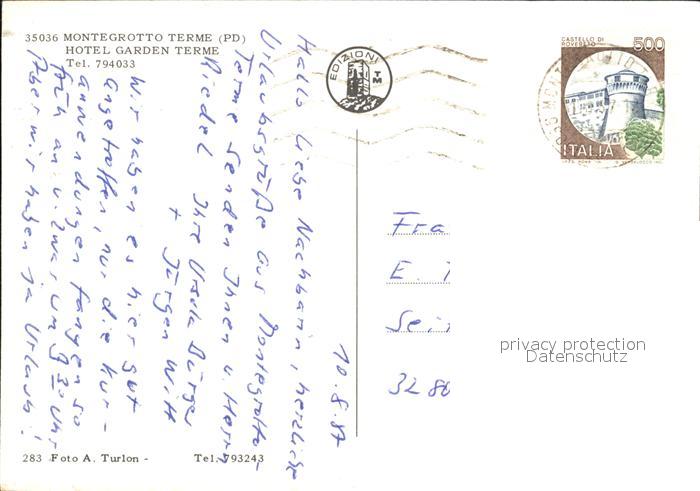 35036 MONTEGROTTO TERME (PD)
HOTEL GARDEN TERME
Tel. 794033
EDIZIONI
TM
CASTELLO DI
ROVERETO
500
ITALIA
10.8.87
Hallo liebe Nachbarin, herzliche
Urlaubsgrüße aus Montegrotto-
Terme senden Ihnen u. Herrn
Riedel Ihre Ursula Bürger
+ Jürgen Witt
Wir haben es hier gut
angetroffen, nur die Kur-
anwendungen fangen so
früh an u. zwar um 9 30 Uhr
Aber wir haben ja Urlaub!
Fra
E.
Sei
32 80
privacy protection
Datenschutz
283 Foto A. Turlon - Tel. 793243